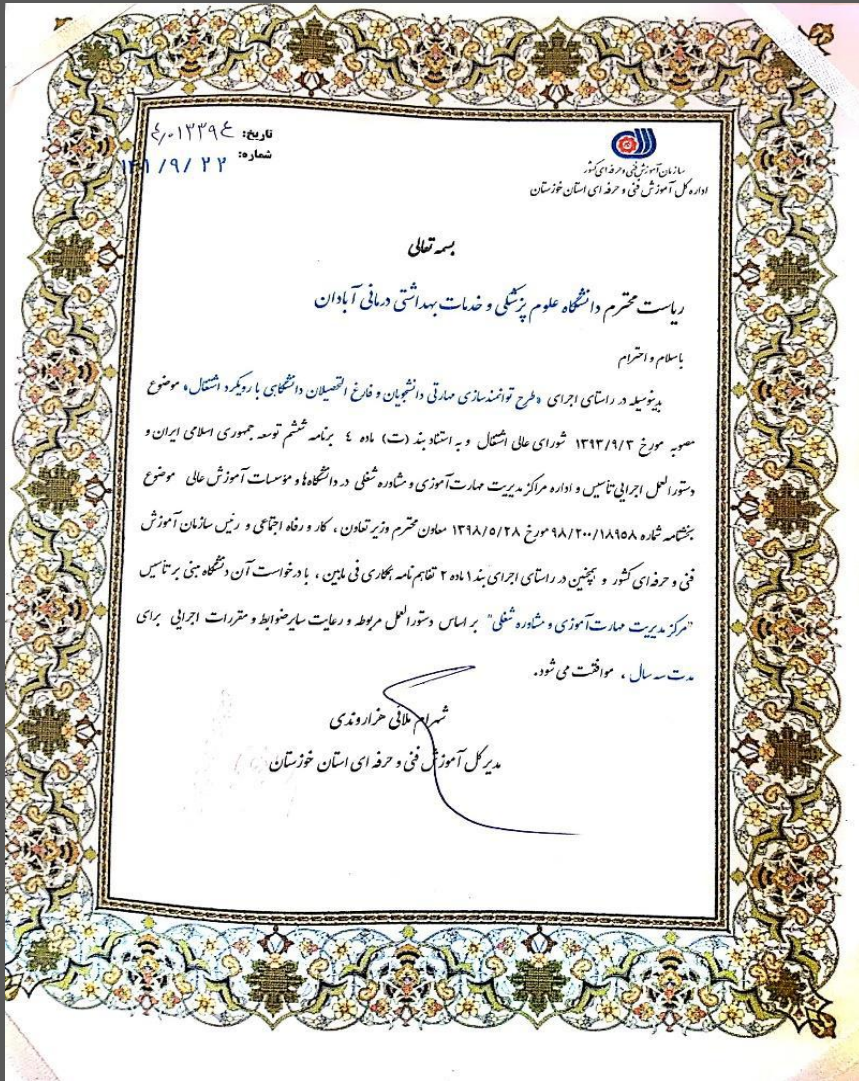 سازمان آموزش فنی و حرفه ای کشور
اداره کل آموزش فنی و حرفه ای استان خوزستان
تاریخ:
شماره:
بسمه تعالی
ریاست محترم دانشگاه علوم پزشکی و خدمات بهداشتی درمانی آبادان
باسلام و احترام
بدینوسیله در راستای اجرای «طرح توانمندسازی مهارتی دانشجویان و فارغ التحصیلان دانشگاهی با رویکرد اشتغال» موضوع
مصوبه مورخ ۱۳۹۳/۹/۳ شورای عالی اشتغال و به استناد بند (ت) ماده ٤ برنامه ششم توسعه جمهوری اسلامی ایران و
دستورالعمل اجرایی تأسیس و اداره مراکز مدیریت مهارت‌آموزی و مشاوره شغلی در دانشگاه‌ها و مؤسسات آموزش عالی موضوع
بخشنامه شماره ۹۸/۲۰۰/۱۸۹۵۸ مورخ ۱۳۹۸/۵/۲۸ معاون محترم وزیر تعاون، کار و رفاه اجتماعی و رئیس سازمان آموزش
فنی و حرفه‌ای کشور و همچنین در راستای اجرای بند ۱ ماده ۲ تفاهم نامه همکاری فی مابین، با درخواست آن دانشگاه مبنی بر تأسیس
"مرکز مدیریت مهارت‌آموزی و مشاوره شغلی" بر اساس دستورالعمل مربوطه و رعایت سایر ضوابط و مقررات اجرایی برای
مدت سه سال، موافقت می شود.
شهرام ملائی هزاروندی
مدیر کل آموزش فنی و حرفه ای استان خوزستان